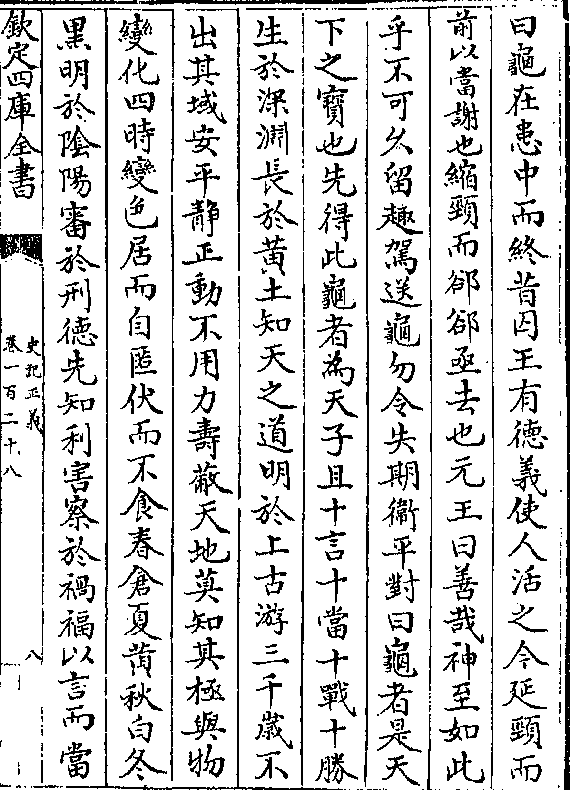 曰龜在患中而終昔囚王有德義使人活之今延頸而
前以當謝也縮頸而郤郤亟去也元王曰善哉神至如此
乎不可久留趣駕送龜勿令失期衞平對曰龜者是天
下之寶也先得此龜者為天子且十言十當十戰十勝
生於深淵長於黄土知天之道明於上古游三千歲不
出其域安平静正動不用力壽蔽天地莫知其極與物
變化四時變色居而自匿伏而不食春倉夏黄秋白冬
黒明於隂陽審於刑德先知利害察於禍福以言而當
欽定四庫全書
史記正義
卷一百二十八
八